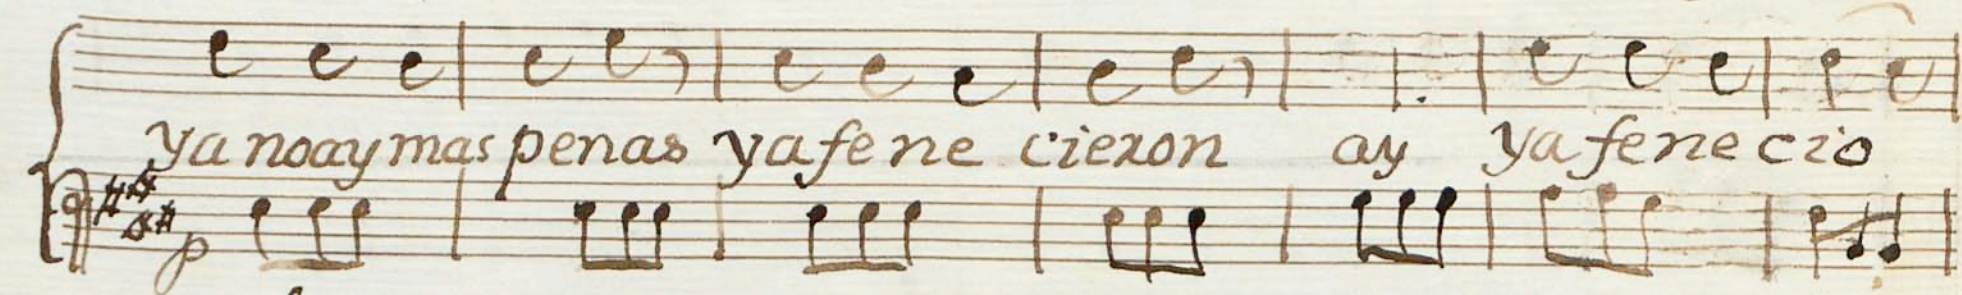 ya no ay mas penas ya fe ne cieron ay ya fe ne cio
p